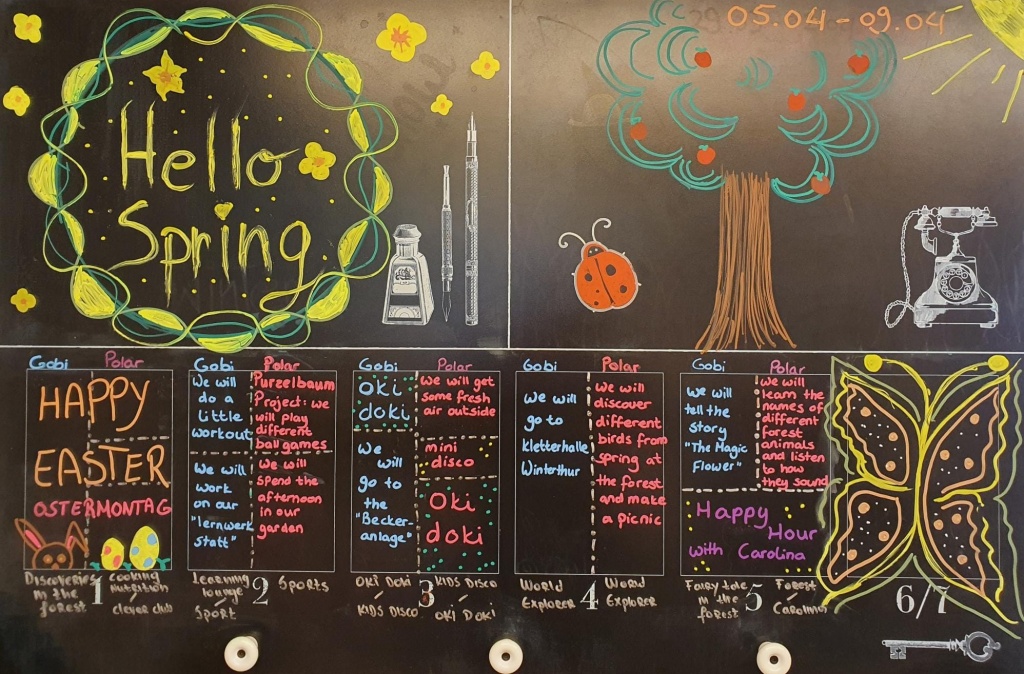 Hello
Spring
05.04 - 09.04
Gobi Polar
HAPPY
EASTER
OSTERMONTAG
Discoveries
in the
forest
1
Cooking
nutrition
clever club
Gobi
We will
do a
little
workout
We will
work
on our
"lernwerk
statt"
Polar
Purzelbaum
Project: we
will play
different
ball games
We will
spend the
afternoon
in our
garden
Learning
lounge
Sport
2
Sports
Gobi
Oki
doki
We
will
go to
the
"Becker-
anlage"
Polar
we will get
some fresh
air outside
mini
disco
Oki
doki
OKI DOKI
KIDS DISCO
3
KIDS DISCO
OKI DOKI
Gobi
We will
go to
Kletterhalle
Winterthur
Polar
We will
discover
different
birds from
spring at
the forest
and make
a picnic
World
Explorer
4
World
Explorer
Gobi
we will
tell the
story
"The Magic
Flower"
Polar
we will
learn the
names of
different
forest
animals
and listen
to how
they sound
Happy
Hour
with Carolina
Fairy tale
in the
forest
5
Forest
Carolina
6/7